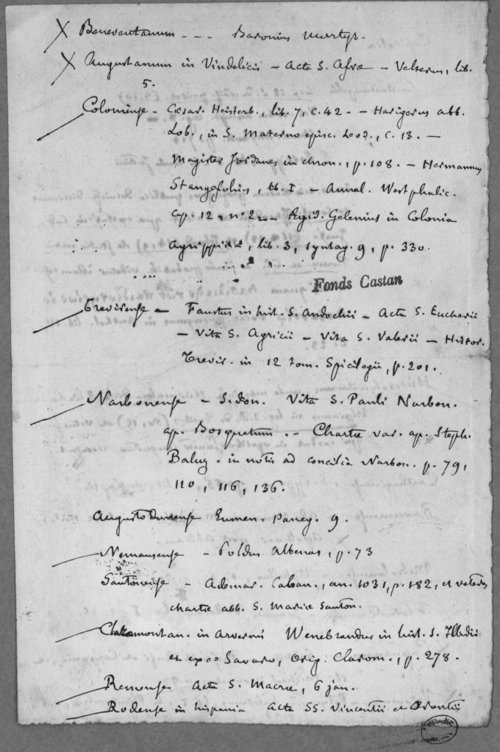 X Beneventanum - - - Baronius Martyr.
X Augustanum in Vindelicis - Acta S. Afrae - Velserus, lib.
5.
Coloniense - Caesar. Heisterb., lib. 7, c. 42 - Harigerus abb.
Lob., in S. Materno episc. Leod., c. 13. -
Magister Jordanes in chron., p. 108. - Hermannus
Stangefolius, lib. I - Annal. Westphalic.
cap. 12, n° 2 - Aegid. Gelenius in Colonia
Agrippina, lib. 3, syntag. 9, p. 330.
Fonds Castan
Trevirense - Faustus in hist. S. Andochii - Acta S. Eucharii
- Vita S. Agricii - Vita S. Valerii - Histor.
Trevir. in 12 tom. Spicilegii, p. 201.
Narbonense - Sidon. Vita S. Pauli Narbon.
ap. Bosquetum .. Chartae var. ap. Steph.
Baluz. in notis ad concilia Narbon. p. 79,
110, 116, 136.
Augustodunense Eumen. Paneg. 9.
Nemausense - Poldus Albenas, p. 73
Santonense - Ademar. Caban., an. 1031, p. 182, et vetus
charta abb. S. Mariae Santon.
Claramontan. in Arvernis Wenebrandus in hist. S. Illidii
et ex eo Savaro, Orig. Clarom., p. 278.
Remense Acta S. Macrae, 6 jan.
Rodense in hispania Acta SS. Vincentii et Orontii